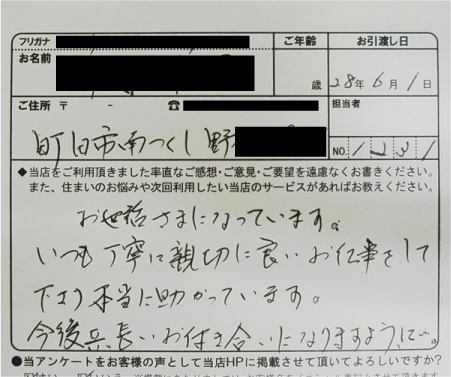 フリガナ
ご年齢
お引渡し日
お名前
歳
28年6月1日
ご住所 〒 - ☎
担当者
町田市南つくし野
NO. 1231
◆当店をご利用頂きました率直なご感想・ご意見・ご要望を遠慮なくお書きください。
また、住まいのお悩みや次回利用したい当店のサービスがあればお教えください。
お世話さまになっています。
いつも丁寧に親切に良いお仕事をして
下さり本当に助かっています。
今後共、長いお付き合いになりますように…。
●当アンケートをお客様の声として当店HPに掲載させて頂いてよろしいですか?